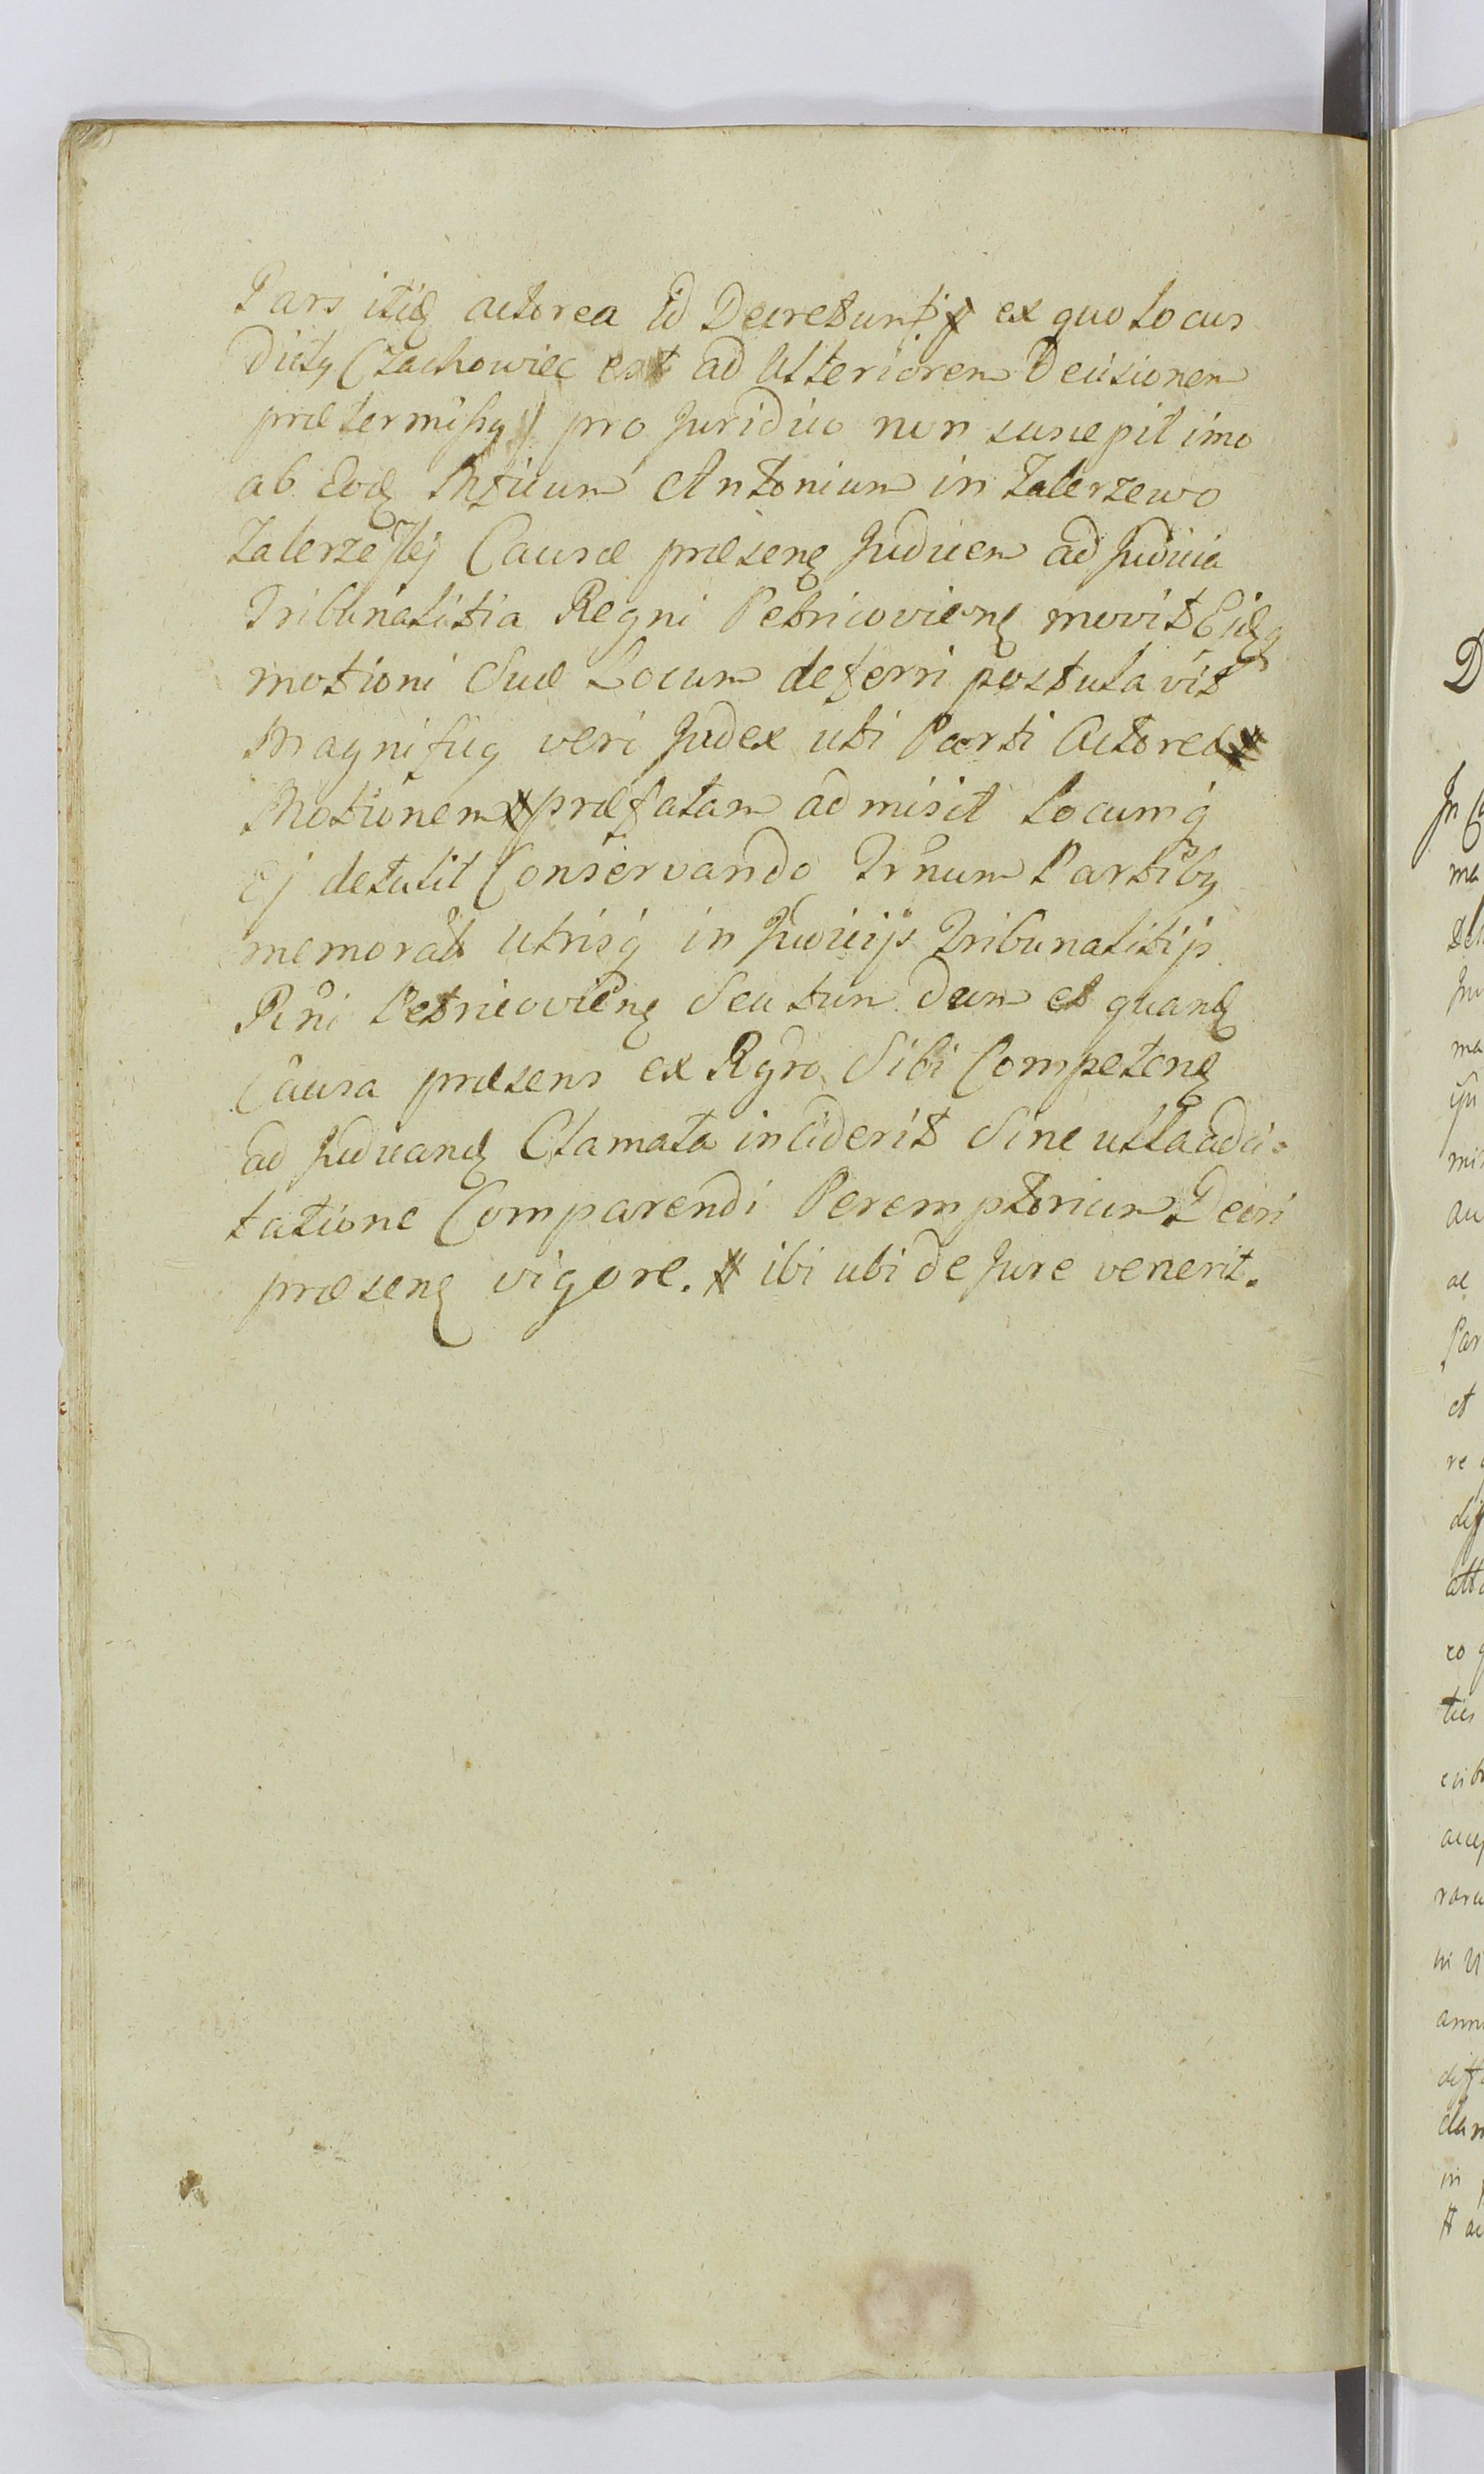 Pars itiꝗ actorea id Decretum ex quo Locus
Dictꝯ Czachowiec est ad Ulteriorem Decisionem
prætermissꝯ pro Juridico non suscepit imo
ab Eodꝫ Mficum Antonium in Zalerzewo
Causæ præsenꝫ Judicem ad Judicia
Tribunalitia Regni Petricovienꝫ movit Ejdꝫqꝫ
motioni Suæ Locum deferri postulavit
Magnificꝯ veri Judex uti Parti Actoreæ
Motionem præfatam admisit Locumq́
Ej detulit Conservando Trnum Partibꝯ
memorat utrisq́ in Judicijs Tribunalitijs
Rni Petricovienꝫ Seu tun dum et quandꝫ
Causa præsens ex Rgro Sibi Competenꝫ
ad Judicandꝫ Clamata inciderit Sine ulla adci=
tatione Comparendi Peremptorium Decri
præsenꝫ vigore. ibi ubi de Jure venerit.
D